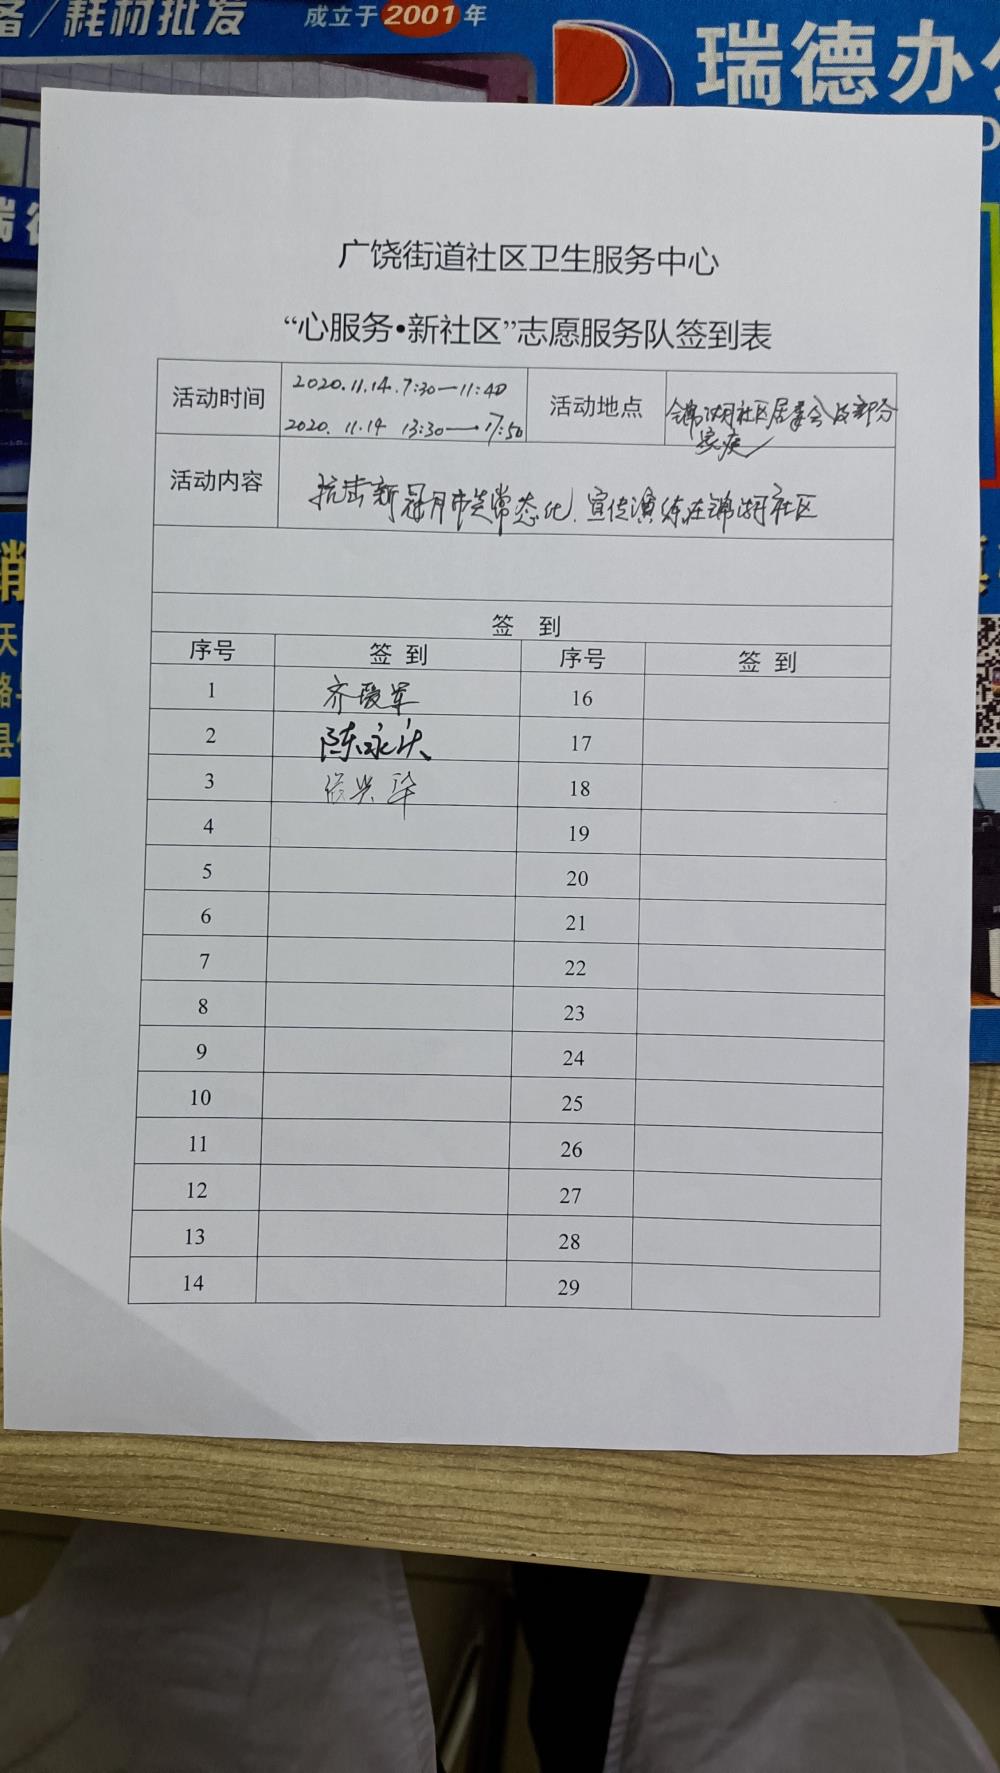 备/耗材批发
成立于2001年
瑞德办公
广饶街道社区卫生服务中心
“心服务•新社区”志愿服务队签到表
活动时间 2020.11.14.7:30—11:40 活动地点 锦湖社区居委会及部分
2020.11.14 13:30—17:50 家庭
活动内容 抗击新冠肺炎常态化.宣传演练在锦湖社区
签 到
序号 签 到 序号 签 到
1 齐爱军 16
2 陈永庆 17
3 张兴华 18
4 19
5 20
6 21
7 22
8 23
9 24
10 25
11 26
12 27
13 28
14 29